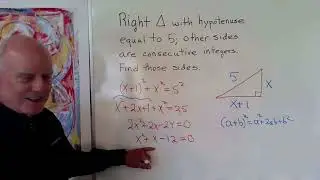 Right △ with hypotenuse
equal to 5; other sides
are consecutive integers.
Find those sides.
(x+1)² + x² = 5²
x²+2x+1+x²=25
2x²+2x-24=0
x²+x-12=0
5
x
x+1
(a+b)²=a²+2ab+b²